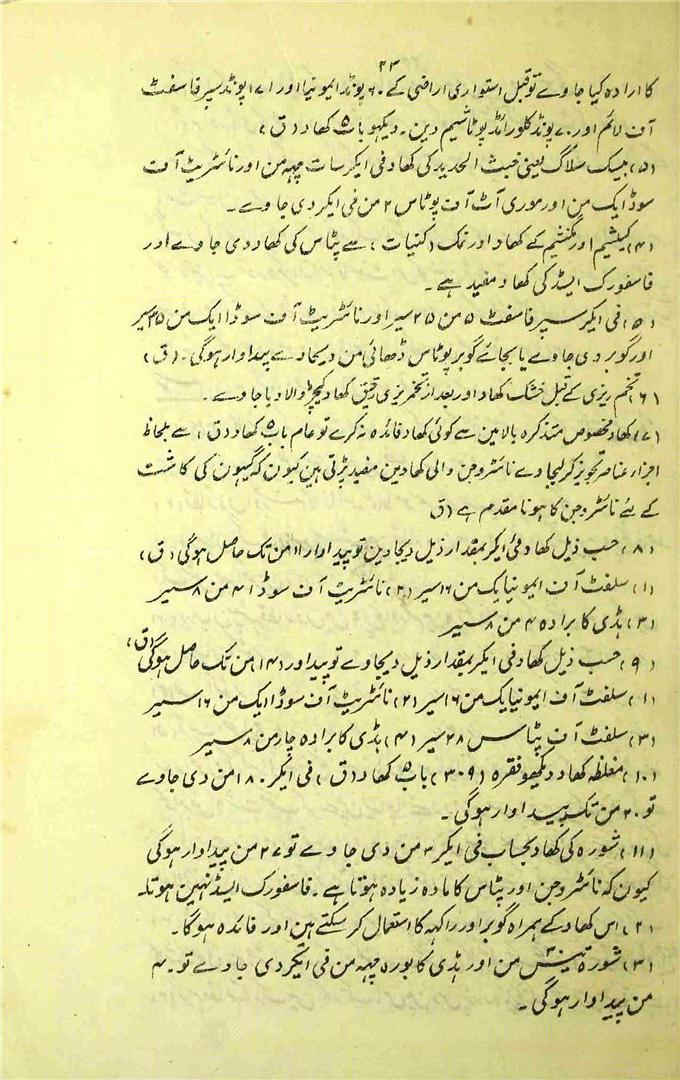 ۲۳
کا ارادہ کیا جاوے تو قبل استواری اراضی کے ۶۰ پونڈ ایمونیا اور ۱۷۱ پونڈ سپر فاسفٹ
آف لائم اور ۷۰ پونڈ کلورائڈ پوٹاشیم دین۔ دیکھو باب ۵ کھاد (ق)
(۵) بیسک سلاگ یعنی خبث الحدید کی کھاد فی ایکر سات چھہ من اور نائٹریٹ آف
سوڈ ایک من اور موری آٹ آف پوٹاس ۲ من فی ایکر دی جاوے۔
(۴) کیلشیم اور مگنشیم کے کھاد اور نمک (کنیات) سے پٹاس کی کھاد دی جاوے اور
فاسفورک ایسڈ کی کھاد مفید ہے۔
(۵) فی ایکر سپر فاسفٹ ۵ من ۲۵ سیر اور نائٹریٹ آف سوڈا ایک من ۳۵ سیر
اور گوبر دی جاوے یا بجائے گوبر پوٹاس ڈھائی من دیجاوے پیداوار ہوگی۔ (ق)
(۶) تخم ریزی کے قبل خشک کھاد اور بعد از تخمریزی رقیق کھاد کیچڑ والا دیا جاوے۔
(۷) کھاد مخصوص متذکرہ بالا مین سے کوئی کھاد فائدہ نہ کرے تو عام باب ۵ کھاد (ق) سے بلحاظ
اجزار عناصر تجویز کر لیجاوے نائٹروجن والی کھادین مفید پڑتی ہین کیون کہ گیہون کی کاشت
کے لئے نائٹروجن کا ہونا مقدم ہے (ق
(۸) حسب ذیل کھاد فی ایکر بمقدار ذیل دیجادین تو پیداوار ۱۱ من تک حاصل ہوگی (ق)
(۱) سلفٹ آف ایمونیا یک من ۱۶ سیر (۲) نائٹریٹ آف سوڈا ۴ من ۸ سیر
(۳) ہڈی کا برادہ ۴ من ۸ سیر
(۹) حسب ذیل کھاد فی ایکر بمقدار ذیل دیجاوے تو پیداور (۱۴) من تک حاصل ہوگی (ق)
(۱) سلفٹ آف ایمونیا یک من ۱۶ سیر (۲) نائٹریٹ آف سوڈا ایک من ۱۶ سیر
(۳) سلفٹ آف پٹاس ۲۸ سیر (۴) ہڈی کا برادہ چار من ۸ سیر
(۱۰) مغلظہ کھاد دیکھو فقرہ (۳۰۹) باب ۵ کھاد (ق) فی ایکر ۱۸۰ من دی جاوے
تو ۲۰ من تک پیداوار ہوگی۔
(۱۱) شورہ کی کھاد بحساب فی ایکر ۳ من دی جاوے تو ۲۷ من پیداوار ہوگی
کیون کہ نائٹروجن اور پٹاس کا مادہ زیادہ ہوتا ہے۔ فاسفورک ایسڈ نہین ہوتا۔
(۲) اس کھاد کے ہمراہ گوبر اور راکہہ کا استعمال کر سکتے ہین اور فائدہ ہوگا۔
(۳) شورہ من اور ہڈی کا بورہ چھہ من فی ایکر دی جاوے تو ۴۰
من پیداوار ہوگی۔